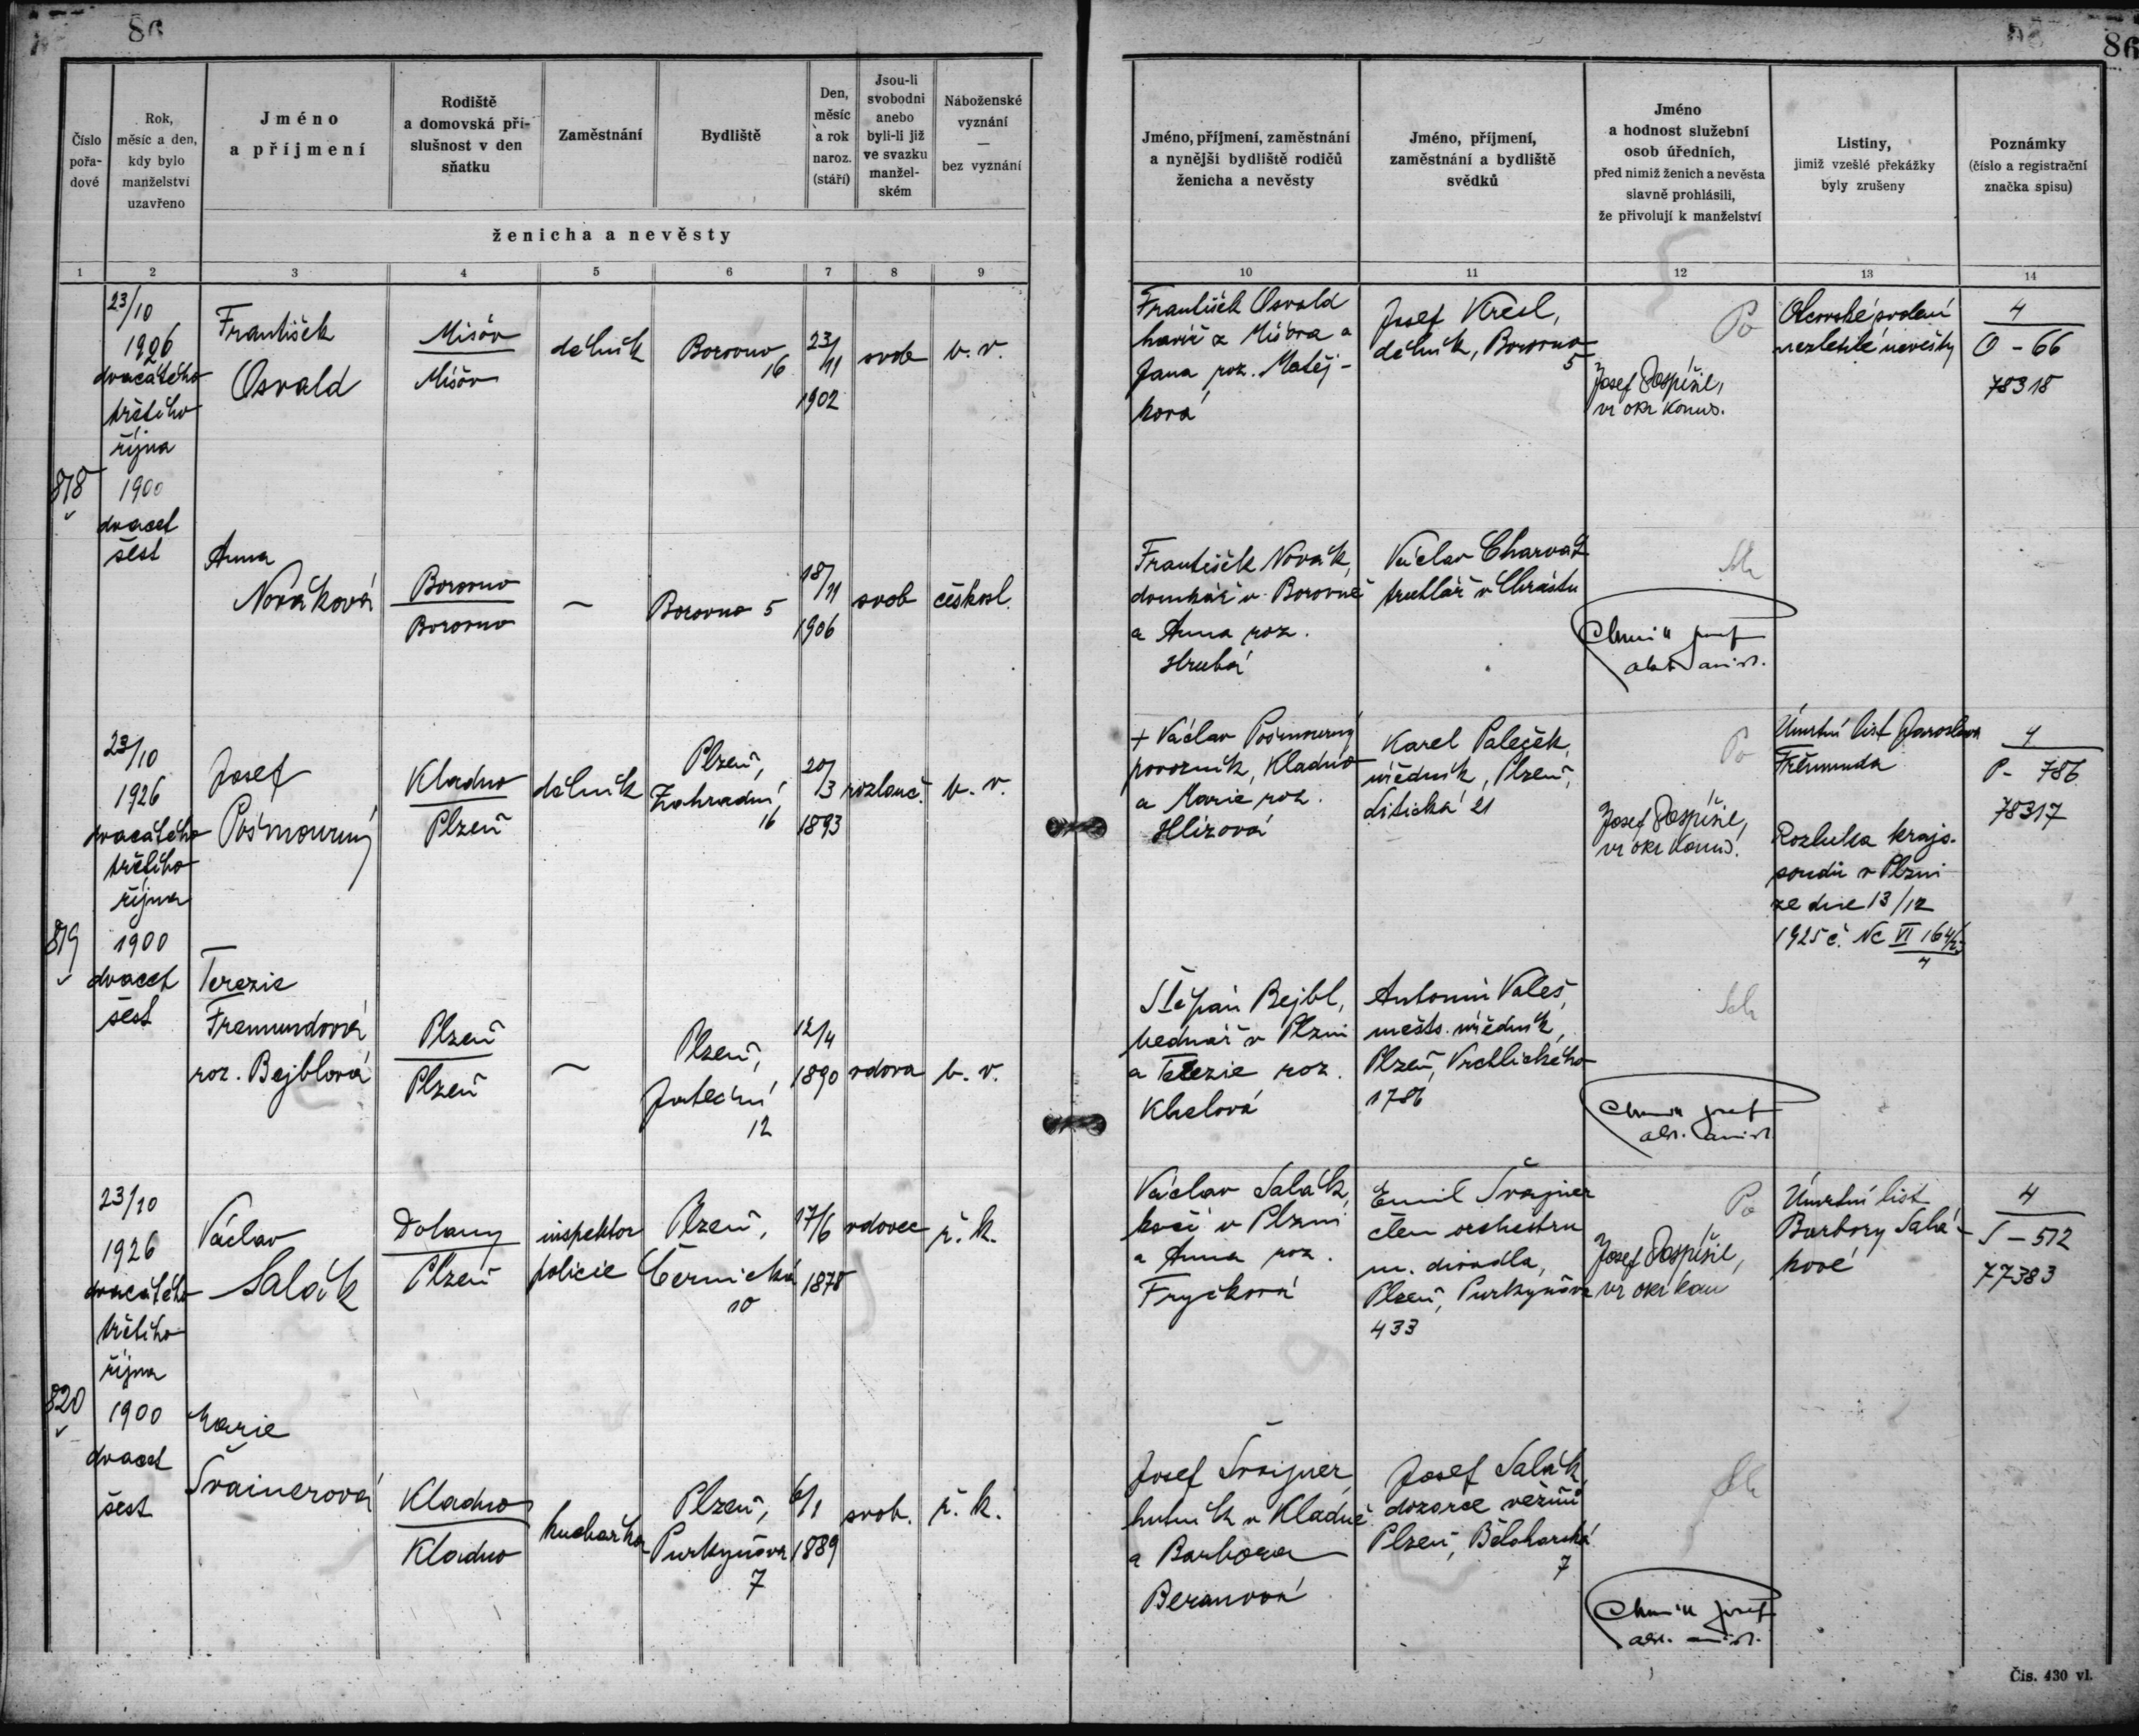 86
86
Číslo pořa- dové
Rok, měsíc a den, kdy bylo manželství uzavřeno
Jméno a příjmení
Rodiště a domovská pří- slušnost v den sňatku
Zaměstnání
Bydliště
Den, měsíc a rok naroz. (stáří)
Jsou-li svobodni anebo byli-li již ve svazku manžel- ském
Náboženské vyznání — bez vyznání
ženicha a nevěsty
Jméno, příjmení, zaměstnání a nynější bydliště rodičů ženicha a nevěsty
Jméno, příjmení, zaměstnání a bydliště svědků
Jméno a hodnost služební osob úředních, před nimiž ženich a nevěsta slavně prohlásili, že přivolují k manželství
Listiny, jimiž vzešlé překážky byly zrušeny
Poznámky (číslo a registrační značka spisu)
1 2 3 4 5 6 7 8 9 10 11 12 13 14
818
23/10
1926
dvacátého
třetího
října
1900
dvacet
šest
František
Osvald
Míšov
Míšov
dělník
Borovno
16
23/11
1902
svob
b. v.
František Osvald
havíř z Míšova a
Jana roz. Matěj-
ková
Josef Kresl,
dělník, Borovno
5
Po
Josef Pospíšil,
vr okr komis.
Otcovské svolení
nezletilé nevěsty
4
O - 66
78318
Anna
Nováková
Borovno
Borovno
~
Borovno 5
18/11
1906
svob
českosl.
František Novák,
domkář v Borovně
a Anna roz.
Hrubá
Václav Charvát
truhlář v Chrástu
Sch
819
23/10
1926
dvacátého
třetího
října
1900
dvacet
šest
Josef
Pošmourný
Kladno
Plzeň
dělník
Plzeň,
Zahradní,
16
20/3
1893
rozlouč.
b. v.
+ Václav Pošmourný
povozník, Kladno
a Marie roz.
Hlízová
Karel Paleček,
úředník, Plzeň,
Litická 21
Po
Josef Pospíšil,
vr okr komis.
Úmrtní list Jaroslava
Frémunda
Rozluka krajs.
soudu v Plzni
ze dne 13/12
1925 č. Nc VI 164/25
4
4
P - 786
78317
Terezie
Fremundová
roz. Bejblová
Plzeň
Plzeň
~
Plzeň,
Jateční,
12
12/4
1890
vdova
b. v.
Štěpán Bejbl,
bednář v Plzni
a Terezie roz.
Khelová
Antonín Valeš,
měšts. úředník,
Plzeň, Vrchlického
1786
Sch
820
23/10
1926
dvacátého
třetího
října
1900
dvacet
šest
Václav
Salák
Dolany
Plzeň
inspektor
policie
Plzeň,
Černická
10
17/6
1878
vdovec
ř. k.
Václav Salák,
kočí v Plzni
a Anna roz.
Fryčková
Emil Švajner
člen orchestru
m. divadla,
Plzeň, Purkyňova
433
Po
Josef Pospíšil,
vr okr kom
Úmrtní list
Barbory Salá-
kové
4
S - 512
77383
Marie
Švainerová
Kladno
Kladno
kuchařka
Plzeň,
Purkyňova
7
6/1
1889
svob.
ř. k.
Josef Švajner,
hutník v Kladně
a Barbora
Beranová
Josef Salák,
dozorce věznů
Plzeň, Bělohorská
7
Sch
Čís. 430 vl.